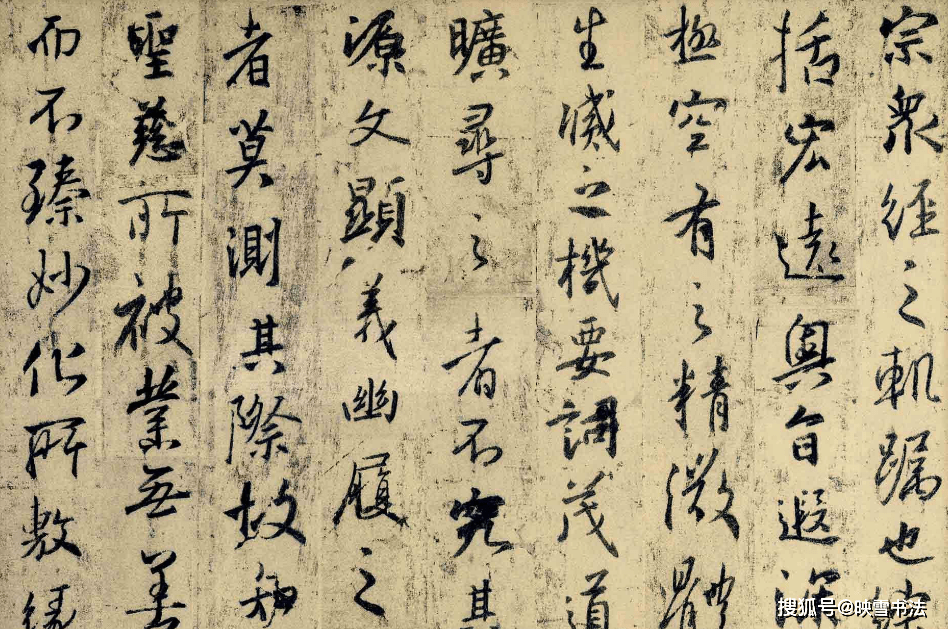 宗眾經之軌躅也綜
括宏遠奧旨遐深
極空有之精微體
生滅之機要詞茂道
曠尋之者不究其
源文顯義幽履之
者莫測其際故知
聖慈所被業無善
而不臻妙化所敷緣
搜狐号@映雪书法